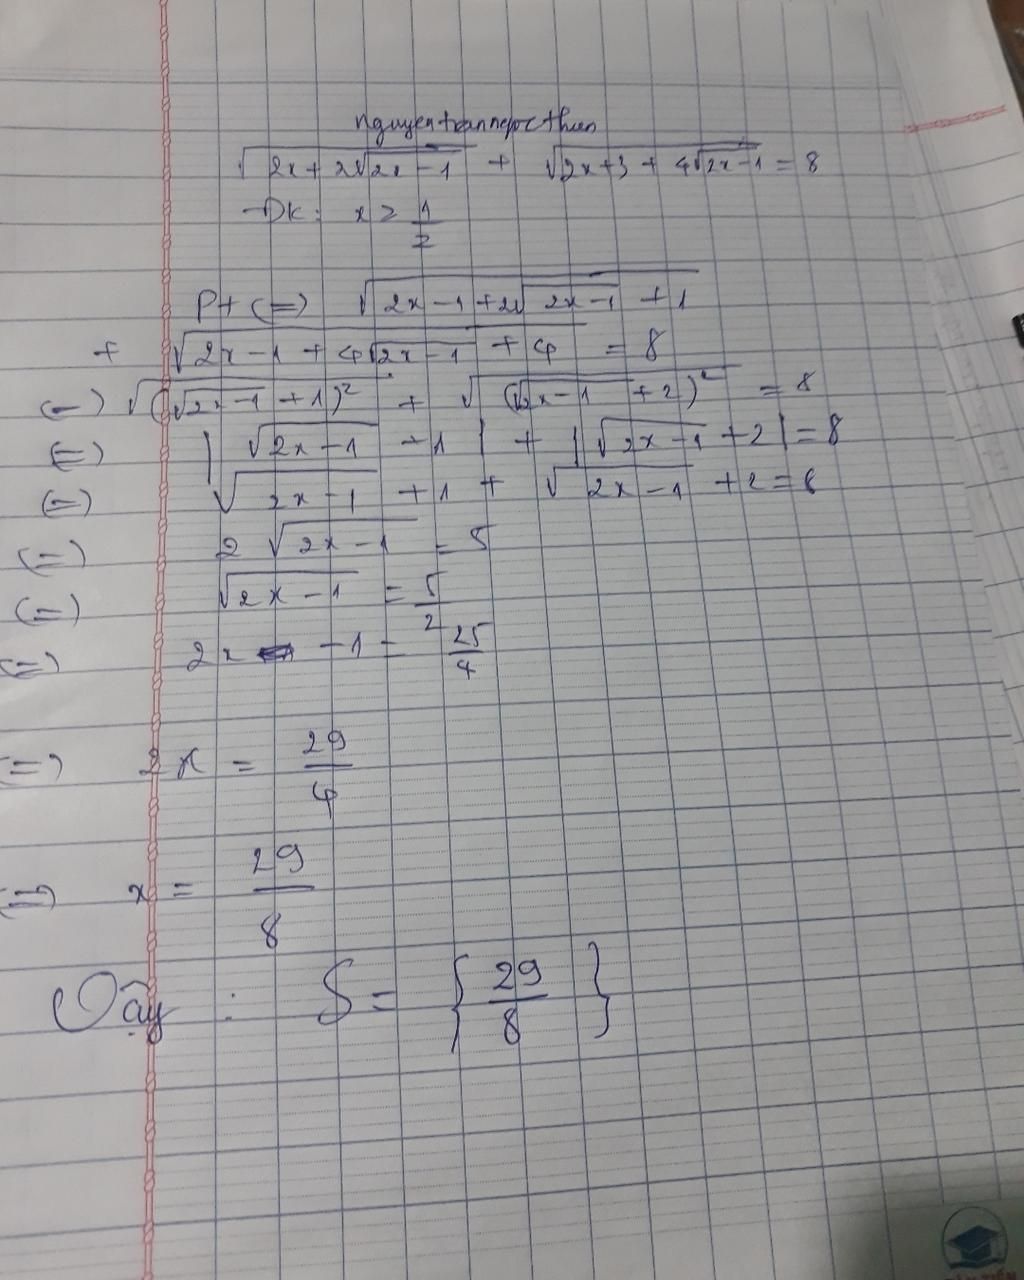 nguyentranngocthien
√(2x + 2√(2x - 1)) + √(2x + 3 + 4√(2x - 1)) = 8
ĐK: x ≥ 1/2
Pt (=) √(2x - 1 + 2√(2x - 1) + 1)
+ √(2x - 1 + 4√(2x - 1) + 4) = 8
(=) √((√(2x - 1) + 1)²) + √((√(2x - 1) + 2)²) = 8
(=) |√(2x - 1) + 1| + |√(2x - 1) + 2| = 8
(=) √(2x - 1) + 1 + √(2x - 1) + 2 = 8
(=) 2√(2x - 1) = 5
(=) √(2x - 1) = 5/2
(=) 2x - 1 = 25/4
(=) 2x = 29/4
(=) x = 29/8
Vậy : S = {29/8}